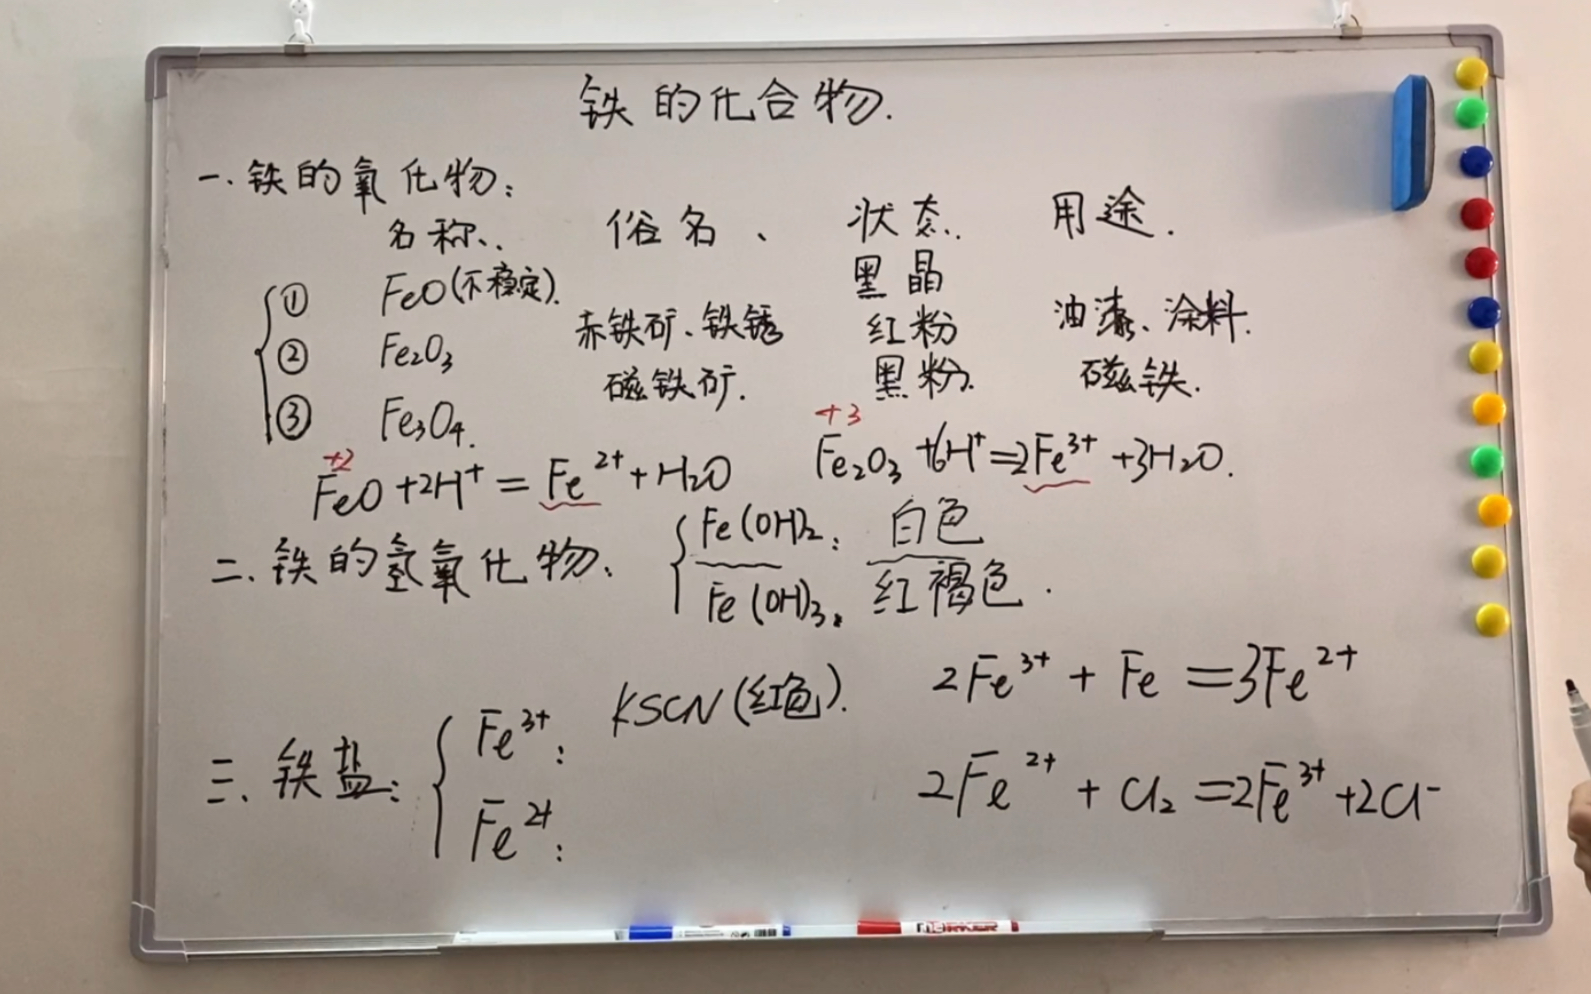 铁的化合物.
一.铁的氧化物:
名称、. 俗名、 状态. 用途.
① FeO(不稳定). 黑晶
② Fe₂O₃ 赤铁矿、铁锈 红粉 油漆、涂料.
③ Fe₃O₄. 磁铁矿. 黑粉. 磁铁.
+2 +3
FeO+2H⁺=Fe²⁺+H₂O Fe₂O₃+6H⁺=2Fe³⁺+3H₂O.
二.铁的氢氧化物、 Fe(OH)₂: 白色
Fe(OH)₃. 红褐色.
三.铁盐: Fe³⁺: KSCN(红色). 2Fe³⁺+Fe=3Fe²⁺
Fe²⁺: 2Fe²⁺+Cl₂=2Fe³⁺+2Cl⁻